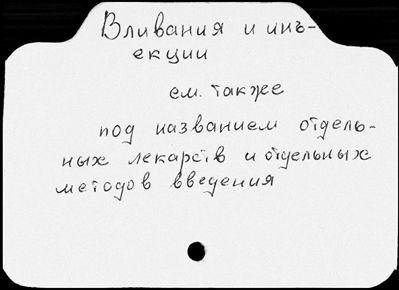 Вливания и инъ-
екции
см. также
под названием отдель-
ных лекарств и отдельных
методов введения